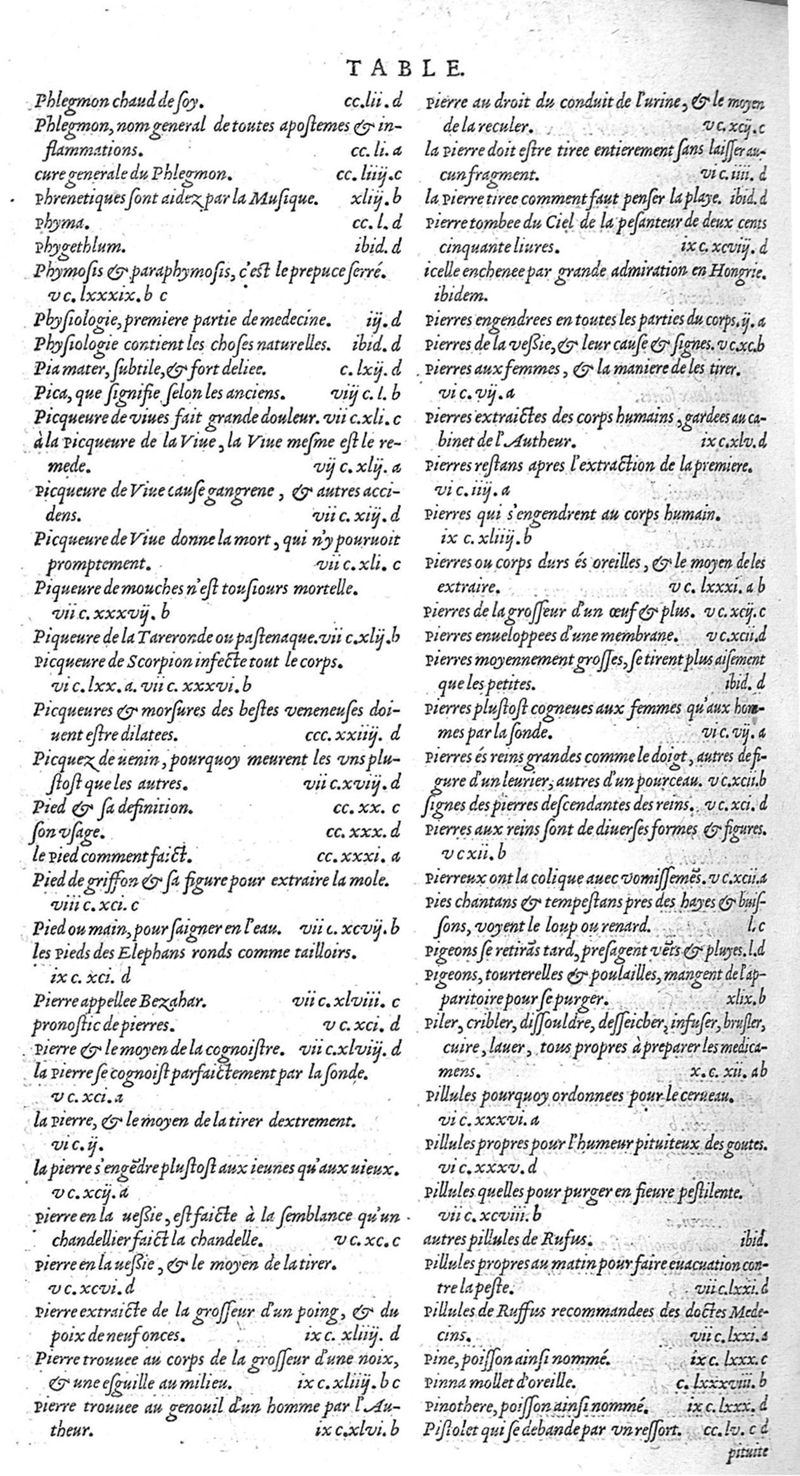 TABLE.
Phlegmon chaud de ſoy. cc.lii.d
Phlegmon, nom general de toutes apoſtemes & in-
flammations. cc.li.a
cure generale du Phlegmon. cc.liiij.c
Phrenetiques ſont aidez par la Muſique. xliij.b
Phyma. cc.l.d
Phygethlum. ibid.d
Phymoſis & paraphymoſis, c'eſt le prepuce ſerré.
v c.lxxxix.b c
Phyſiologie, premiere partie de medecine. iij.d
Phyſiologie contient les choſes naturelles. ibid.d
Pia mater, ſubtile, & fort deliee. c.lxij.d
Pica, que ſignifie ſelon les anciens. viij c.l.b
Picqueure de viues fait grande douleur. vii c.xli.c
à la Picqueure de la Viue, la Viue meſme eſt le re-
mede. vij c.xlij.a
Picqueure de Viue cauſe gangrene, & autres acci-
dens. vii c.xij.d
Picqueure de Viue donne la mort, qui n'y pouruoit
promptement. vii c.xli.c
Piqueure de mouches n'eſt touſiours mortelle.
vii c.xxxvij.b
Piqueure de la Tareronde ou paſtenaque. vii c.xlij.b
Picqueure de Scorpion infecte tout le corps.
vi c.lxx.a. vii c.xxxvi.b
Picqueures & morſures des beſtes veneneuſes doi-
uent eſtre dilatees. ccc.xxiiij.d
Picquez de uenin, pourquoy meurent les vns plu-
ſtoſt que les autres. vii c.xvij.d
Pied & ſa definition. cc.xx.c
ſon vſage. cc.xxx.d
le Pied comment faict. cc.xxxi.a
Pied de griffon & ſa figure pour extraire la mole.
viii c.xci.c
Pied ou main, pour ſaigner en l'eau. vii c.xcvij.b
les Pieds des Elephans ronds comme tailloirs.
ix c.xci.d
Pierre appellee Bezahar. vii c.xlviii.c
pronoſtic de pierres. v c.xci.d
Pierre & le moyen de la cognoiſtre. vii c.xlviij.d
la Pierre ſe cognoiſt parfaictement par la ſonde.
v c.xci.a
la Pierre, & le moyen de la tirer dextrement.
vi c.ij.
la pierre s'engẽdre pluſtoſt aux ieunes qu'aux uieux.
v c.xcij.a
Pierre en la ueßie, eſt faicte à la ſemblance qu'un
chandellier faict la chandelle. v c.xc.c
Pierre en la ueßie, & le moyen de la tirer.
v c.xcvi.d
Pierre extraicte de la groſſeur d'un poing, & du
poix de neuf onces. ix c.xliiij.d
Pierre trouuee au corps de la groſſeur d'une noix,
& une eſguille au milieu. ix c.xliij.b c
Pierre trouuee au genouil d'un homme par l'Au-
theur. ix c.xlvi.b
Pierre au droit du conduit de l'urine, & le moyen
de la reculer. v c.xcij.c
la Pierre doit eſtre tiree entierement ſans laiſſer au-
cun fragment. vi c.iiii.d
la Pierre tiree comment faut penſer la playe. ibid.d
Pierre tombee du Ciel de la peſanteur de deux cents
cinquante liures. ix c.xcviij.d
icelle enchenee par grande admiration en Hongrie.
ibidem.
Pierres engendrees en toutes les parties du corps. ij.a
Pierres de la veßie, & leur cauſe & ſignes. v c.xc.b
Pierres aux femmes, & la maniere de les tirer.
vi c.vij.a
Pierres extraictes des corps humains, gardees au ca-
binet de l'Autheur. ix c.xlv.d
Pierres reſtans apres l'extraction de la premiere.
vi c.iiij.a
Pierres qui s'engendrent au corps humain.
ix c.xliiij.b
Pierres ou corps durs és oreilles, & le moyen de les
extraire. v c.lxxxi.a b
Pierres de la groſſeur d'un œuf & plus. v c.xcij.c
Pierres enueloppees d'une membrane. v c.xcii.d
Pierres moyennement groſſes, ſe tirent plus aiſement
que les petites. ibid.d
Pierres pluſtoſt cogneues aux femmes qu'aux hom-
mes par la ſonde. vi c.vij.a
Pierres és reins grandes comme le doigt, autres de fi-
gure d'un leurier, autres d'un pourceau. v c.xcii.b
ſignes des pierres deſcendantes des reins. v c.xci.d
Pierres aux reins ſont de diuerſes formes & figures.
v c xii.b
Pierreux ont la colique auec vomiſſemẽs. v c.xcii.a
Pies chantans & tempeſtans pres des hayes & buiſ-
ſons, voyent le loup ou renard. l.c
Pigeons ſe retirãs tard, preſagent vẽts & pluyes. l.d
Pigeons, tourterelles & poulailles, mangent de l'ap-
paritoire pour ſe purger. xlix.b
Piler, cribler, diſſouldre, deſſeicher, infuſer, bruſler,
cuire, lauer, tous propres à preparer les medica-
mens. x.c.xii.ab
Pillules pourquoy ordonnees pour le cerueau.
vi c.xxxvi.a
Pillules propres pour l'humeur pituiteux des goutes.
vi c.xxxv.d
Pillules quelles pour purger en fieure peſtilente.
vii c.xcviii.b
autres pillules de Rufus. ibid.
Pillules propres au matin pour faire euacuation con-
tre la peſte. vii c.lxxi.d
Pillules de Ruffus recommandees des doctes Mede-
cins. vii c.lxxi.a
Pine, poiſſon ainſi nommé. ix c.lxxx.c
Pinna mollet d'oreille. c.lxxxviii.b
Pinothere, poiſſon ainſi nommé. ix c.lxxx.d
Piſtolet qui ſe debande par un reſſort. cc.lv.c d
pituite